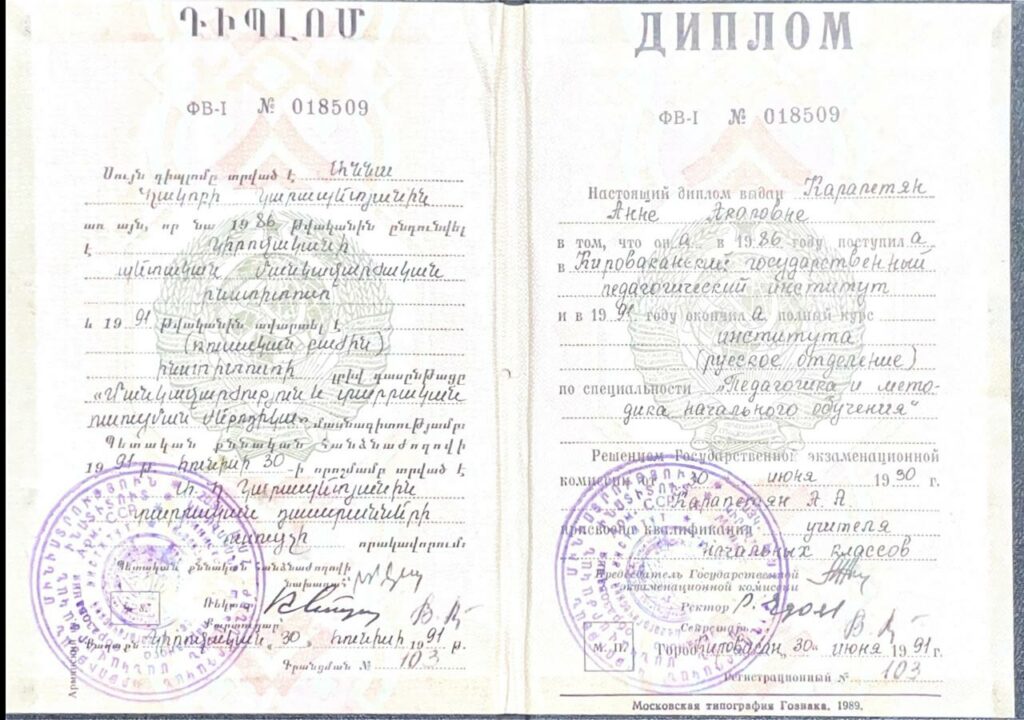 ԴԻՊԼՈՄ
ФВ-I № 018509
Սույն դիպլոմը տրված է Աննա
Հակոբի Կարապետյանին
առ այն, որ նա 1986 թվականին ընդունվել
է Կիրովականի
պետական մանկավարժական
ինստիտուտ
և 1991 թվականին ավարտել է
(ռուսական բաժին)
ինստիտուտի լրիվ դասընթացը
«Մանկավարժություն և տարրական
ուսուցման մեթոդիկա» մասնագիտությամբ:
Պետական քննական հանձնաժողովի
1991 թ. հունիսի 30 -ի որոշմամբ տրված է
Ա. Հ. Կարապետյանին
տարրական դասարանների
ուսուցչի որակավորում:
Պետական քննական հանձնաժողովի
նախագահ
Ռեկտոր
Քարտուղար
Քաղաք Կիրովական „30“ հունիսի 1991 թ.
Գրանցման № 103
ДИПЛОМ
ФВ-I № 018509
Настоящий диплом выдан Карапетян
Анне Акоповне
в том, что она в 1986 году поступила
в Кироваканский государственный
педагогический институт
и в 1991 году окончила полный курс
института
(русское отделение)
по специальности „Педагогика и мето-
дика начального обучения“
Решением Государственной экзаменационной
комиссии от 30 июня 1990 г.
Карапетян А. А.
присвоена квалификация учителя
начальных классов
Председатель Государственной
экзаменационной комиссии
Ректор
Секретарь
Город Кировакан, 30 июня 1991 г.
М. П.
Регистрационный № 103
Московская типография Гознака. 1989.